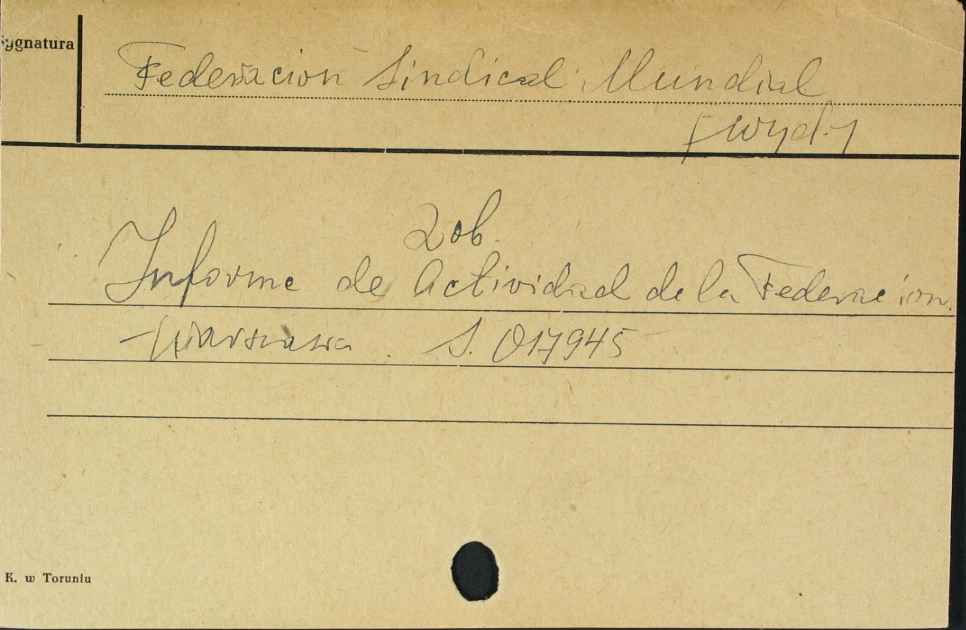 Sygnatura
Federacion Sindical Mundial
[wyd.]
Zob.
Informe de Actividad de la Federacion.
Warszawa. S. 017945
K. w Toruniu